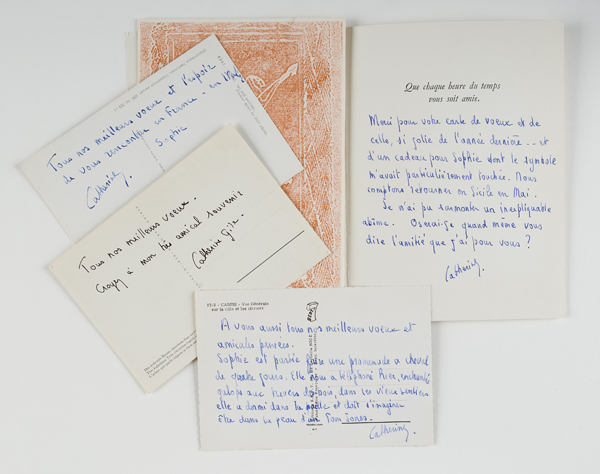 Tous nos meilleurs voeux et l'espoir
de vous rencontrer en France - en
Sophie
Catherine
Tous nos meilleurs voeux
Croyez à mon très amical souvenir
Catherine
Que chaque heure du temps
vous soit amie.
Merci pour votre carte de voeux et de
celle, si jolie de l'année dernière -- et
d'un cadeau pour Sophie dont le symbole
m'avait particulièrement touchée. Nous
comptons retourner en Sicile en Mai.
Je n'ai pu surmonter un inexplicable
abîme. Oserai-je quand même vous
dire l'amitié que j'ai pour vous ?
Catherine.
CARNES - Vue Générale
sur la ville et les
A vous aussi tous nos meilleurs voeux et
amicales pensées.
Sophie est partie faire une promenade à cheval
de quatre jours. Elle nous a téléphoné hier, enchantée
galops aux travers des bois, dans les vieux sentiers
elle a dormi dans la paille et doit s'imaginer
être dans la peau d'un Tom Jones.
Catherine.